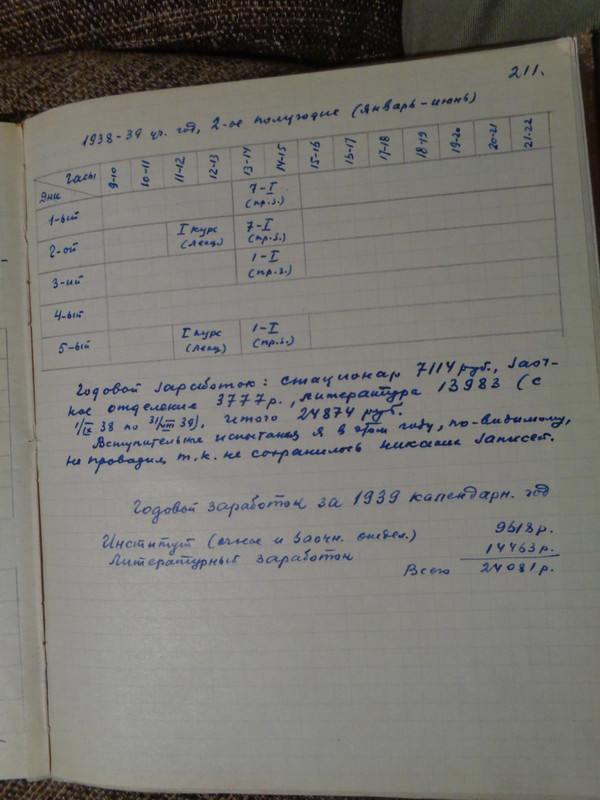 211.
1938-39 уч. год, 2-ое полугодие (январь-июнь)
Часы 9-10 10-11 11-12 12-13 13-14 14-15 15-16 16-17 17-18 18-19 19-20 20-21 21-22
Дни
1-ый 7-I (пр.з.)
2-ой I курс (лекц.) 7-I (пр.з.)
3-ий 1-I (пр.з.)
4-ый
5-ый I курс (лекц.) 1-I (пр.з.)
Годовой заработок: стационар 7114 руб., заоч-
ное отделение 3777 р., литература 13983 (с
1/IX 38 по 31/VIII 39), итого 24874 руб.
Вступительные испытания я в этом году, по-видимому,
не проводил, т.к. не сохранилось никаких записей.
Годовой заработок за 1939 календарн. год
Институт (очное и заочн. отдел.) 9618 р.
Литературный заработок 14463 р.
Всего 24081 р.